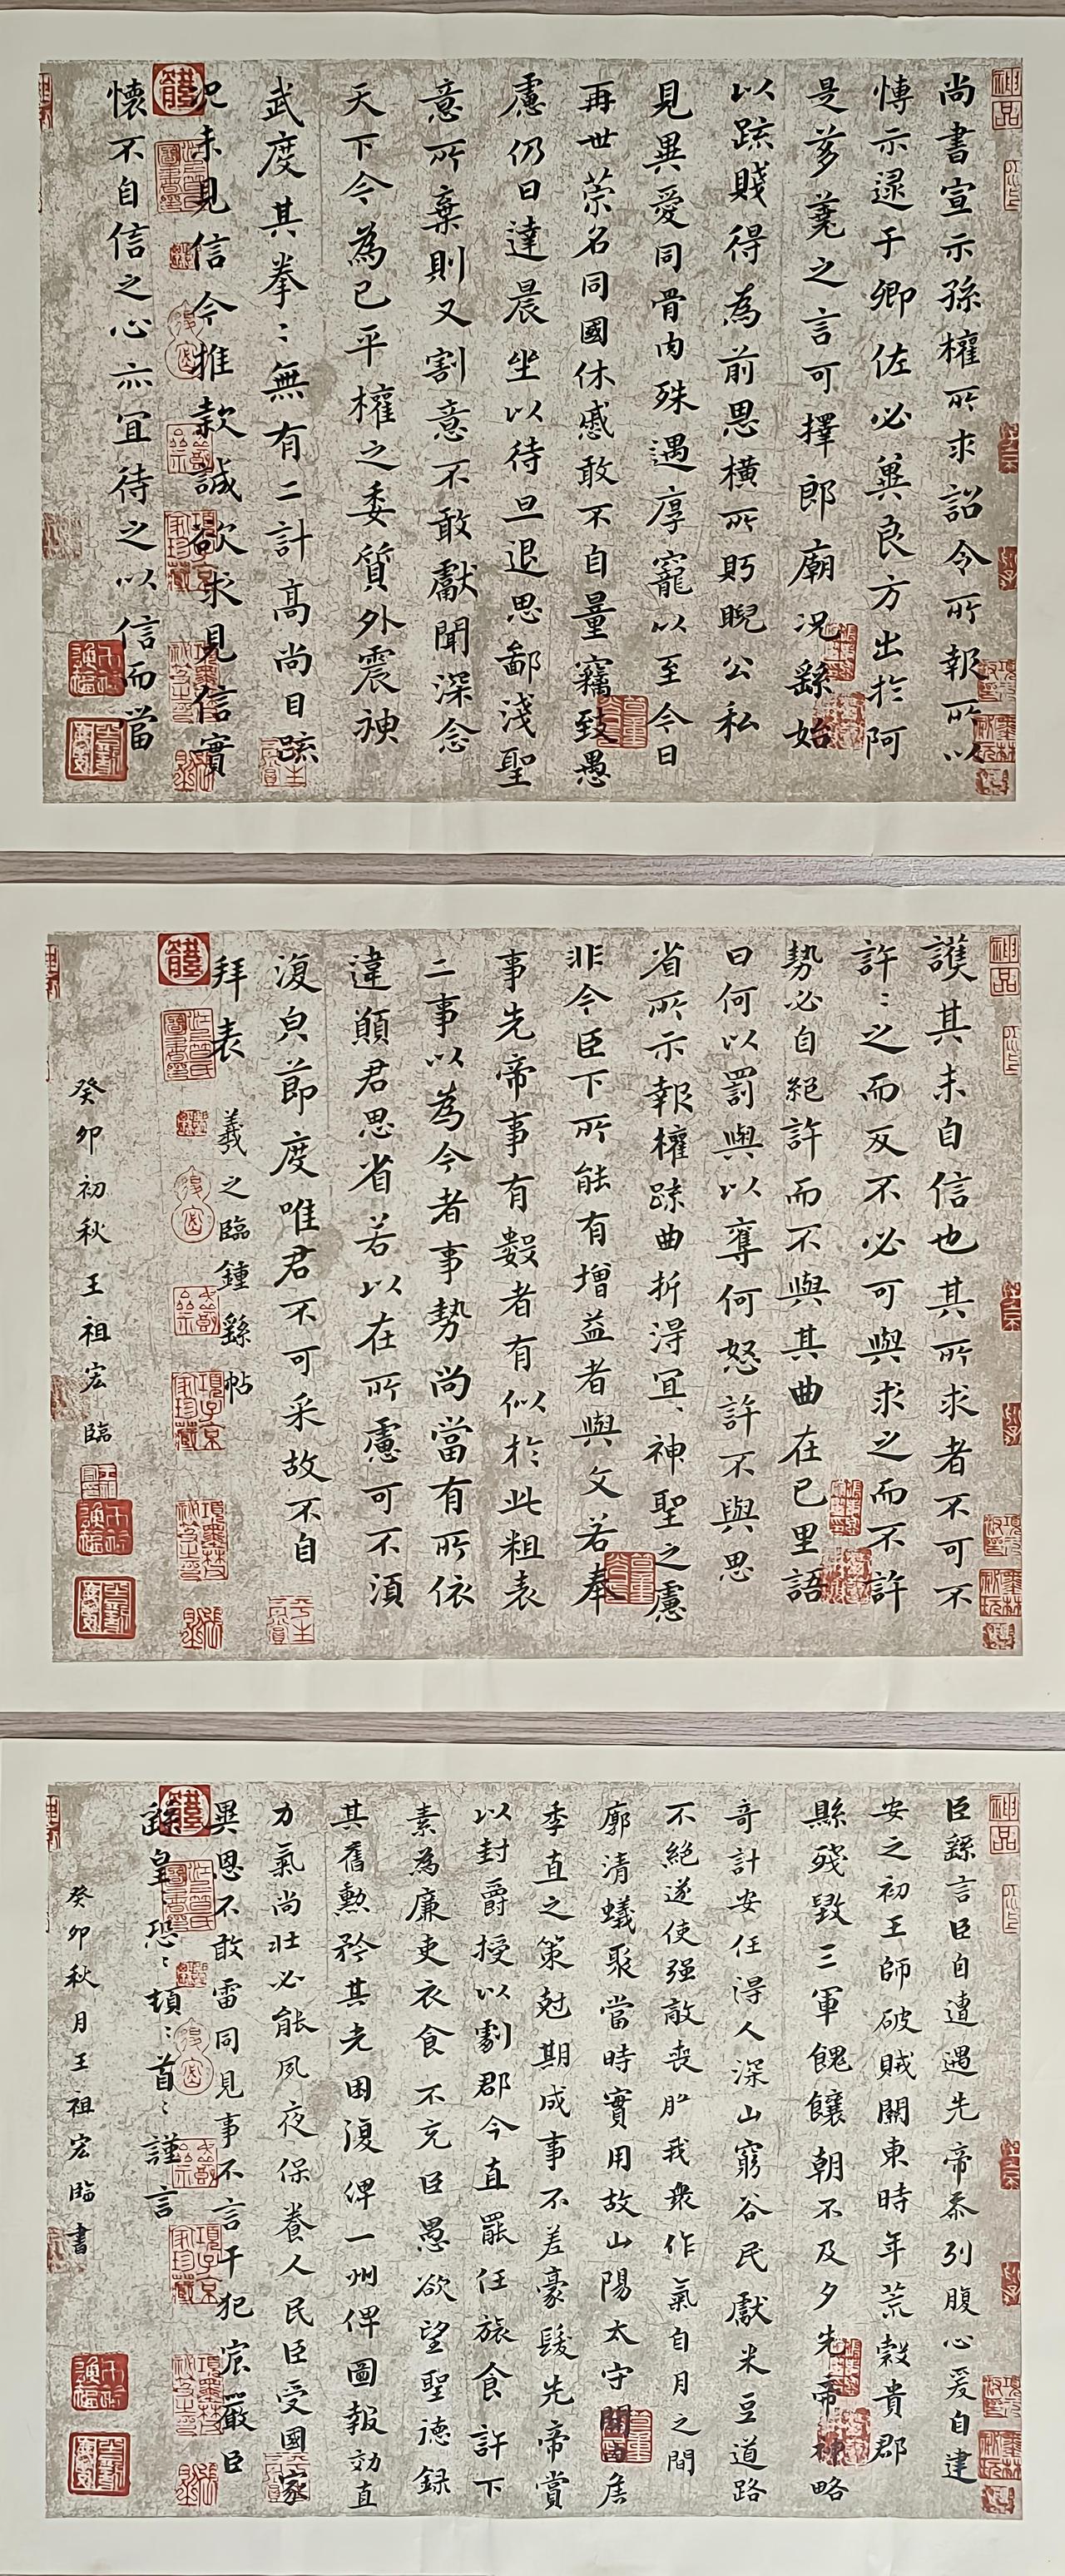 尚書宣示孫權所求詔令所報所以
博示逮于卿佐必冀良方出於阿
是芻蕘之言可擇郎廟況繇始
以疏賤得為前思橫所眄睨公私
見異愛同骨肉殊遇厚寵以至今日
再世榮名同國休慼敢不自量竊致愚
慮仍日達晨坐以待旦退思鄙淺聖
意所棄則又割意不敢獻聞深念
天下今為已平權之委質外震神
武度其拳〻無有二計高尚自疏
況未見信今推款誠欲求見信實
懷不自信之心亦宜待之以信而當
護其未自信也其所求者不可不
許〻之而反不必可與求之而不許
勢必自絕許而不與其曲在己里語
曰何以罰與以奪何怒許不與思
省所示報權疏曲折得宜神聖之慮
非今臣下所能有增益者與文若奉
事先帝事有數者有似於此粗表
二事以為今者事勢尚當有所依
違願君思省若以在所慮可不須
復白節度唯君不可采故不自
拜表 羲之臨鍾繇帖
癸卯初秋 王祖宏 臨
臣繇言臣自遭遇先帝忝列腹心爰自建
安之初王師破賊關東時年荒穀貴郡
縣殘毀三軍餽饟朝不及夕先帝神略
奇計委任得人深山窮谷民獻米豆道路
不絕遂使强敵喪膽我衆作氣旬月之間
廓清蟻聚當時實用故山陽太守關內侯
季直之策尅期成事不差豪髮先帝賞
以封爵授以劇郡今直罷任旅食許下
素為廉吏衣食不充臣愚欲望聖德録
其舊勲矜其老困復俾一州俾圖報効直
力氣尚壯必能夙夜保養人民臣受國家
異恩不敢雷同見事不言干犯宸嚴臣
繇皇〻恐〻頓〻首〻謹言
癸卯秋月王祖宏臨書